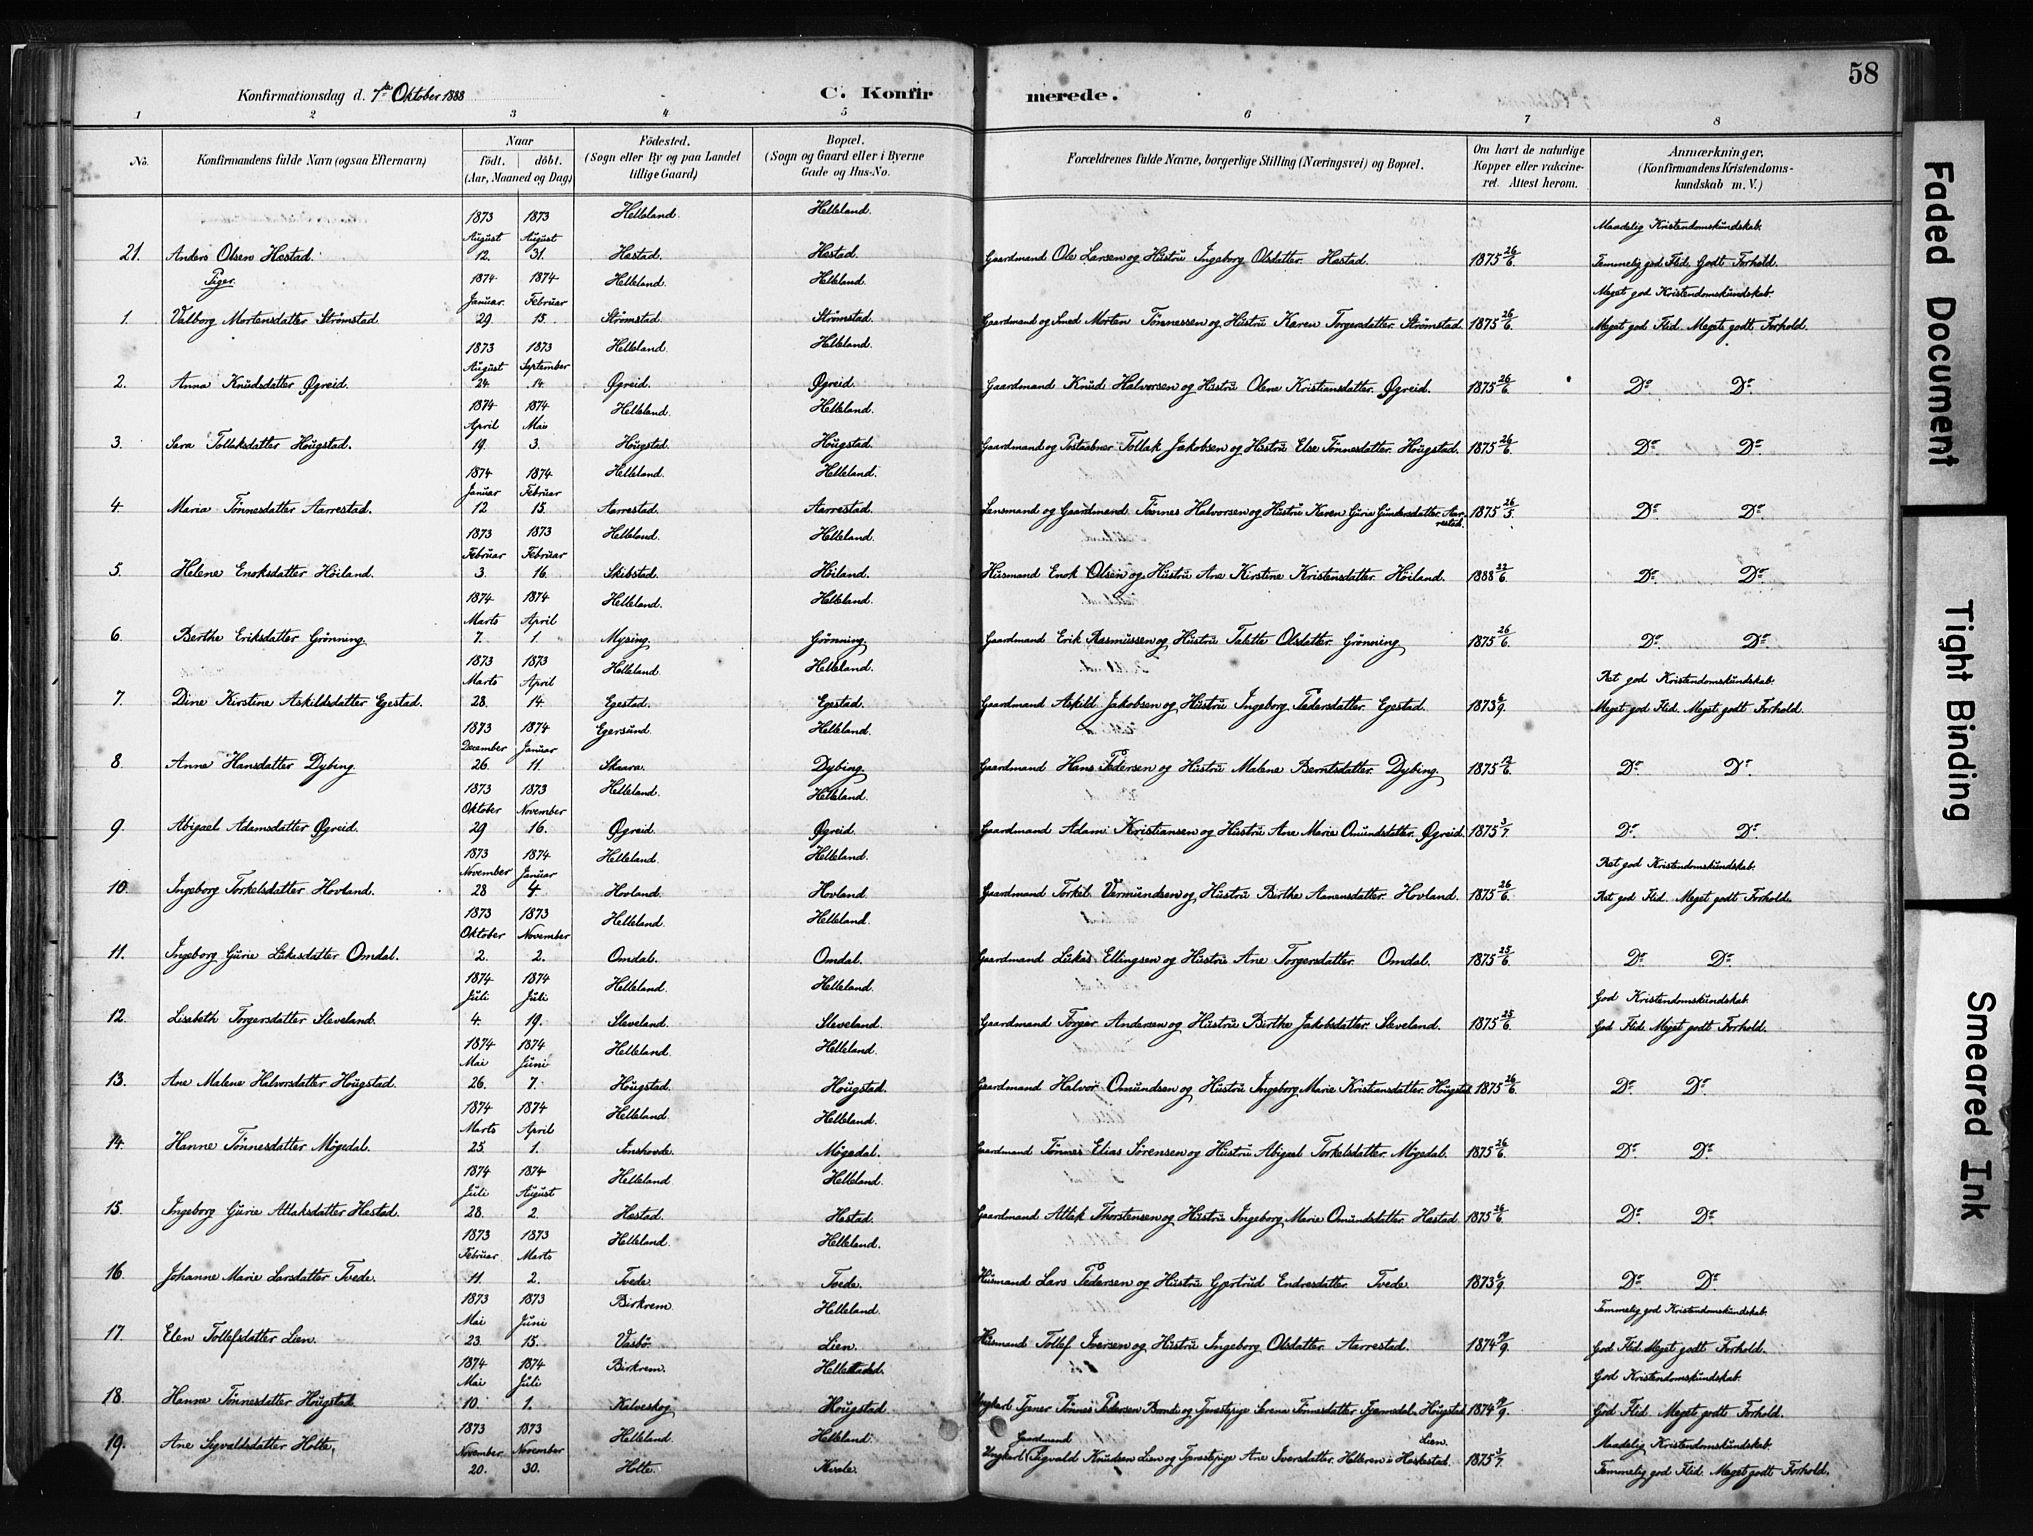 58
Konfirmationsdag d. 7de Oktober 1888
C. Konfirmerede.
1 2 3 4 5 6 7 8
No. Konfirmandens fulde Navn (ogsaa Efternavn) Naar født. døbt. (Aar, Maaned og Dag) Fødested. (Sogn eller By og paa Landet tillige Gaard) Bopæl. (Sogn og Gaard eller i Byerne Gade og Hus-No. Forældrenes fulde Navne, borgerlige Stilling (Næringsvei) og Bopæl. Om havt de naturlige Kopper eller vakcineret. Attest herom. Anmærkninger. (Konfirmandens Kristendomskundskab m. V.)
1873 1873 Helleland. Helleland. Maadelig Kristendomskundskab.
August August
21. Anders Olsen Hestad. 12. 31. Hestad. Hestad. Gaardmand Ole Larsen og Hustru Ingeborg Olsdatter. Hestad. 1875 26/6. Temmelig god Flid. Godt Forhold.
Piger. 1874 1874 Helleland. Helleland. Meget god Kristendomskundskab.
Januar. Februar
1. Valborg Mortensdatter Strømstad 29. 15. Strømstad. Strømstad. Gaardmand og Smed Morten Tønnessen og Hustru Karen Torgersdatter. Strømstad. 1875 26/6. Meget god Flid. Meget godt Forhold.
1873 1873 Helleland. Helleland.
August September
2. Anna Knudsdatter Øgreid. 24. 14. Øgreid. Øgreid. Gaardmand Knud Halvorsen og Hustru Olene Kristiansdatter. Øgreid. 1875 26/6. Do. Do.
1874 1874 Helleland. Helleland.
April Mai
3. Sara Tollaksdatter Hougstad. 19. 3. Hougstad. Hougstad. Gaardmand og Postaabner Tollak Jakobsen og Hustru Else Tønnesdatter. Hougstad. 1875 26/6. Do. Do.
1874 1874 Helleland. Helleland.
Januar Februar
4. Maria Tønnesdatter Aarrestad. 12 15. Aarrestad. Aarrestad. Lensmand og Gaardmand Tønnes Halvorsen og Hustru Karen Gurie Gundersdatter. Aarrestad. 1875 26/5. Do. Do.
1873 1873 Helleland. Helleland.
Februar Februar
5. Helene Enoksdatter Høiland. 3. 16. Skibstad. Høiland. Husmand Enok Olsen og Hustru Ane Kirstine Kristensdatter. Høiland. 1888 22/6. Do. Do.
1874 1874 Helleland. Helleland.
Marts April
6. Berthe Eriksdatter Grønning. 7. 1. Mysing. Grønning. Gaardmand Erik Rasmussen og Hustru Talette Olsdatter. Grønning 1875 26/6. Do. Do.
1873 1873 Helleland. Helleland. Ret god Kristendomskundskab.
Marts April
7. Dine Kirstine Askildsdatter Egestad. 28. 14. Egestad. Egestad. Gaardmand Askild Jakobsen og Hustru Ingeborg Pedersdatter. Egestad. 1873 6/9. Meget god Flid. Meget godt Forhold.
1873 1874 Egersund. Helleland.
December Januar
8. Anne Hansdatter Dybing. 26. 11. Skaara. Dybing. Gaardmand Hans Pedersen og Hustru Malene Berntsdatter. Dybing. 1875 Do. Do.
1873 1873 Helleland. Helleland.
Oktober November
9. Abigael Adamsdatter Øgreid. 29 16. Øgreid. Øgreid. Gaardmand Adam Kristiansen og Hustru Ane Marie Omundsdatter. Øgreid. 1875 3/7. Do. Do.
1873 1874 Helleland. Helleland. Ret god Kristendomskundskab.
November Januar
10. Ingeborg Torkelsdatter Hovland. 28 4. Hovland. Hovland. Gaardmand Torkil Vermundsen og Hustru Birthe Aanensdatter. Hovland. 1875 26/6. Ret god Flid. Meget godt Forhold.
1873 1873 Helleland. Helleland.
Oktober November
11. Ingeborg Gurie Lukasdatter Omdal. 2. 2. Omdal. Omdal. Gaardmand Lukas Ellingsen og Hustru Ane Torgersdatter. Omdal. 1875 25/6. Do. Do.
1874 1874 Helleland. Helleland. God Kristendomskundskab.
Juli Juli
12. Lisabeth Torgersdatter Sleveland. 4. 19. Sleveland. Sleveland. Gaardmand Torger Andersen og Hustru Birthe Jakobsdatter. Sleveland. 1875 25/6. God Flid. Meget godt Forhold.
1874 1874 Helleland. Helleland.
Mai Juni
13. Ane Malene Halvorsdatter Hougstad. 26. 7. Hougstad. Hougstad. Gaardmand Halvor Omundsen og Hustru Ingeborg Marie Kristiansdatter. Hougstad. 1875 26/6. Do. Do.
1874 1874 Helleland. Helleland.
Marts April
14. Hanne Tønnesdatter Møgedal. 25. 1. Møgedal. Gaardmand Tønnes Elias Sørensen og Hustru Abigael Torkelsdatter. Møgedal. 1875 26/6. Do. Do.
1874 1874 Helleland. Helleland.
Juli August
15. Ingeborg Gurie Attaksdatter Hestad. 28. 2. Hestad. Hestad. Gaardmand Attak Thorstensen og Hustru Ingeborg Marie Omundsdatter. Hestad. 1875 26/6. Do. Do.
1873 1873 Helleland. Helleland.
Februar Marts
16. Johanne Marie Larsdatter Tvede. 11. 2. Tvede. Tvede. Husmand Lars Pedersen og Hustru Gjertrud Endresdatter. Tvede. 1873 6/9. Do. Do.
1873 1873 Birkrem. Helleland. Temmelig god Kristendomskundskab.
Mai Juni
17. Elen Tollefsdatter Lien. 23. 15. Vasbø. Lien. Husmand Tollef Iversen og Hustru Ingeborg Olsdatter. Aarrestad. 1874 God Flid. Meget godt Forhold.
1874 1874 Birkrem. Helleland. God Kristendomskundskab.
Mai Juli
18. Hanne Tønnesdatter Hougstad 10. 1. Kalveskog Hougstad. Ungkarl Tjener Tønnes Pedersen Bonde og Tjenestepige Serena Tønnesdatter Tjærndal. Hougstad. 1874 God Flid. Meget godt Forhold.
1873 1873 Helleland. Helleland. Gaardmand Lien. Maadelig Kristendomskundskab.
November November
19. Ane Sigvaldsdatter Hotte. 20. 30. Hotte. Kvale. Ungkarl Sigvald Knudsen Lien og Tjenestepige Ane Iversdatter. Helleren i Heskestad. 1875 3/7. Temmelig god Flid. Meget godt Forhold.
Faded Document
Tight Binding
Smeared Ink